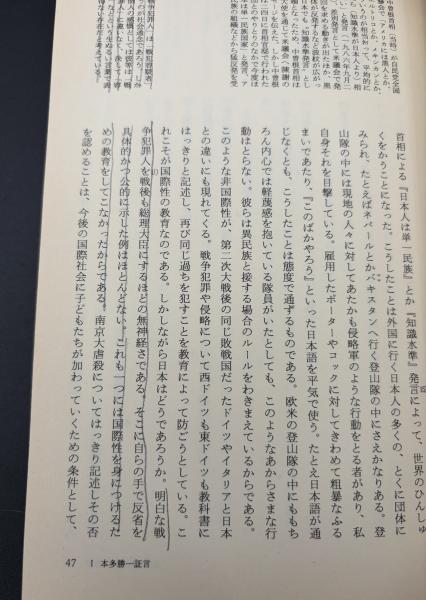 中曽根首相(当時)が自民党全
メリカには黒人とか、
ルトリコとか、メキシカンとか、
いうのは相当いて、平均的に
知識水準が日本人より
発言(一九八六年九月二
首相による『日本人は単一民族』とか『知識水準』発言によって、世界のひんしゅ
くをかうことになった。こうしたことは外国に行く日本人の多くの、とくに団体に
みられ、たとえばネパールとかパキスタンへ行く登山隊の中にさえかなりある。登
山隊の中には現地の人々に対してあたかも侵略軍のような行動をとる者があり、私
自身それを目撃している。雇用したポーターやコックに対してきわめて粗暴なふる
まいであたり、『このばかやろう』といった日本語を平気で使う。たとえ日本語が通
じなくとも、こうしたことは態度で通ずるものである。欧米の登山隊の中にももち
ろん内心では軽蔑感を抱いている隊員がいたとしても、このようなあからさまな行
動はとらない。彼らは異民族と接する場合のルールをわきまえているからである。
このような非国際性が、第二次大戦後の同じ敗戦国だったドイツやイタリアと日本
との違いにも現れてくる。戦争犯罪や侵略について西ドイツも東ドイツも教科書に
はっきりと記述し、再び同じ過ちを犯すことを教育によって防ごうとしている。こ
れこそが国際性の教育なのである。しかしながら日本はどうであろうか。明白な戦
争犯罪人を戦後も総理大臣にするほどの無神経さである。そこに自らの手で反省を
具体的かつ公的に示した例はほとんどない。これも一つには国際性を身につけるた
めの教育をしてこなかったからである。南京大虐殺についてはっきり記述しその否
を認めることは、今後の国際社会に子どもたちが加わっていくための条件として、
47 Ⅰ 本多勝一証言